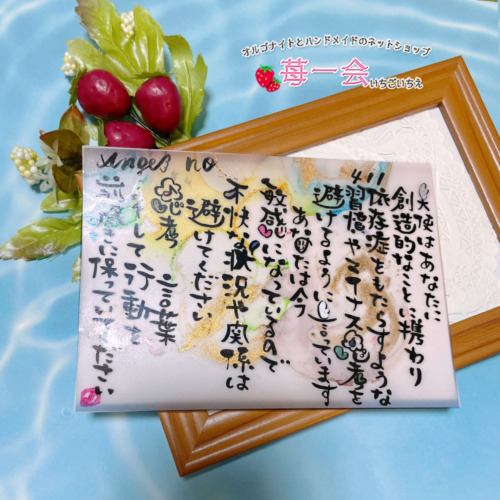 オルゴナイトとハンドメイドのネットショップ
苺一会
いちごいちえ
Angel no
411
天使はあなたに
創造的なことに携わり
依存症をもたらすような
習慣やマイナス思考を
避けるように言っています
あなたは今
敏感になっているので
不快な状況や関係は
避けてください
思考 言葉
そして行動を
前向きに保っていてください